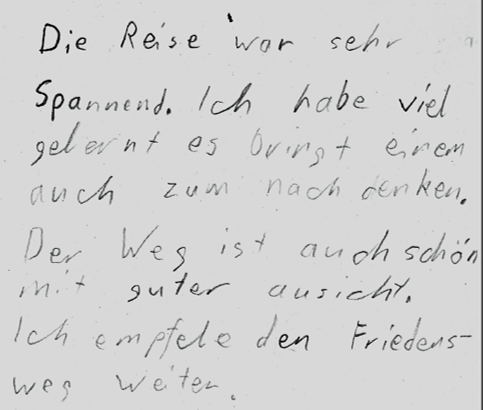 Die Reise war sehr
Spannend. Ich habe viel
gelernt es bringt einem
auch zum nach denken.
Der Weg ist auch schön
mit guter ausicht.
Ich empfele den Friedens-
weg weiter.